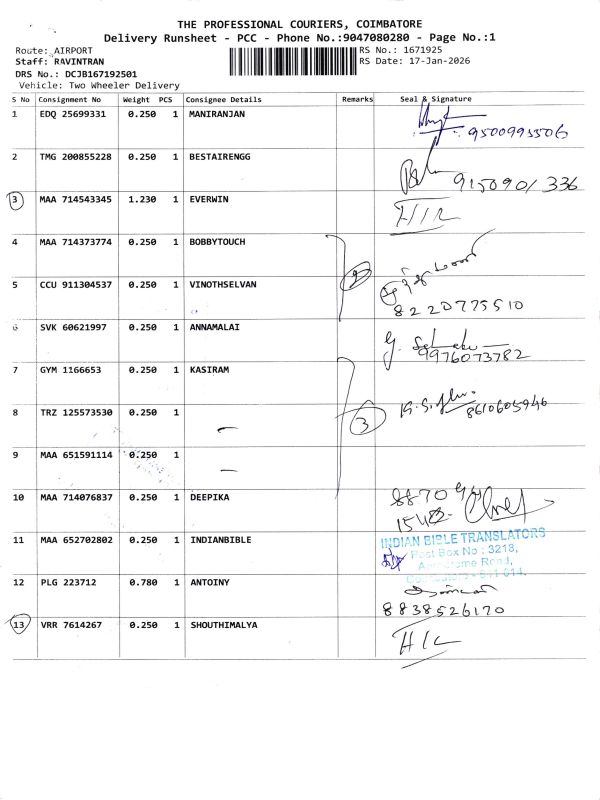 THE PROFESSIONAL COURIERS, COIMBATORE
Delivery Runsheet - PCC - Phone No.:9047080280 - Page No.:1
Route: AIRPORT
RS No.: 1671925
Staff: RAVINTRAN
RS Date: 17-Jan-2026
DRS No.: DCJB167192501
Vehicle: Two Wheeler Delivery
S No Consignment No Weight PCS Consignee Details Remarks Seal & Signature
1 EDQ 25699331 0.250 1 MANIRANJAN
9500995506
2 TMG 200855228 0.250 1 BESTAIRENGG
9150901336
3 MAA 714543345 1.230 1 EVERWIN
4 MAA 714373774 0.250 1 BOBBYTOUCH
2
5 CCU 911304537 0.250 1 VINOTHSELVAN
8220775510
6 SVK 60621997 0.250 1 ANNAMALAI
9976073782
7 GYM 1166653 0.250 1 KASIRAM
8610605946
8 TRZ 125573530 0.250 1
3
9 MAA 651591114 0.250 1
10 MAA 714076837 0.250 1 DEEPIKA
11 MAA 652702802 0.250 1 INDIANBIBLE
INDIAN BIBLE TRANSLATORS
Post Box No : 3218,
Aerodrome Road,
Coimbatore - 641 014.
12 PLG 223712 0.780 1 ANTOINY
8838526170
13 VRR 7614267 0.250 1 SHOUTHIMALYA